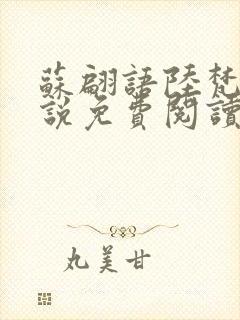 蘇翩語陸梵
說免費閱讀
丸美甘